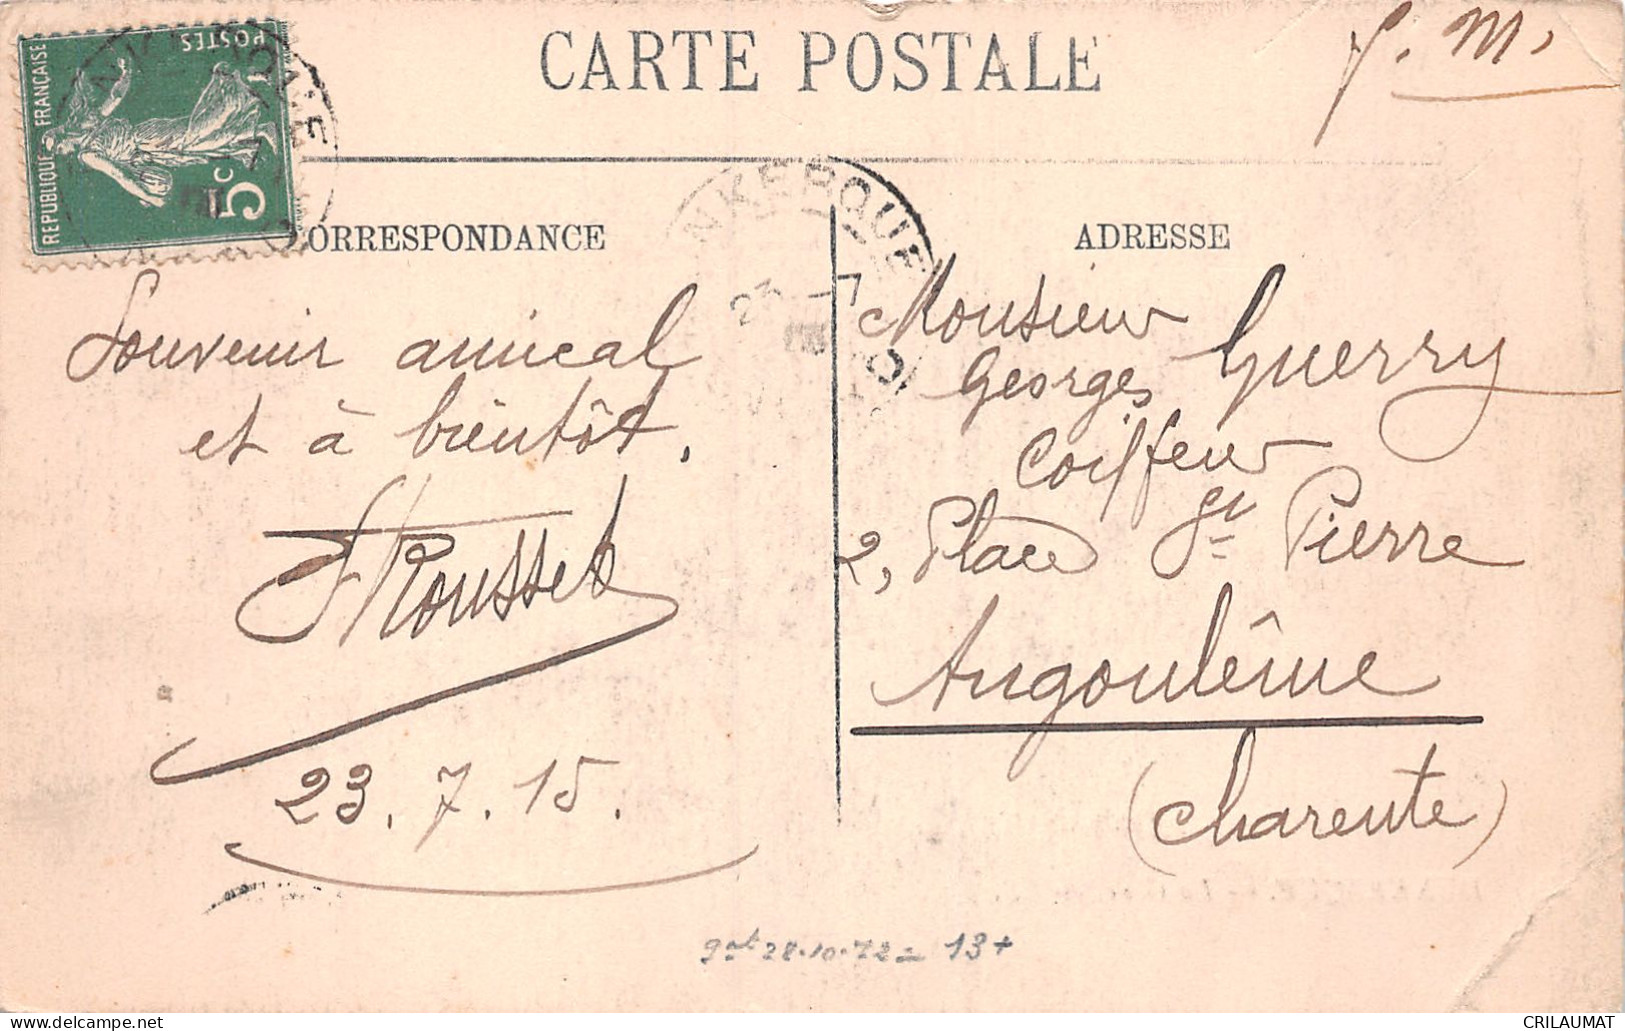 CARTE POSTALE
F. M.
POSTES
REPUBLIQUE FRANÇAISE
5c
NKERQUE
23 -7
CORRESPONDANCE
ADRESSE
Souvenir amical
et à bientôt.
Rousset
23.7.15.
Monsieur
Georges Guerry
Coiffeur
2, Place St Pierre
Angoulême
(Charente)
28.10.72 = 13+
CRILAUMAT